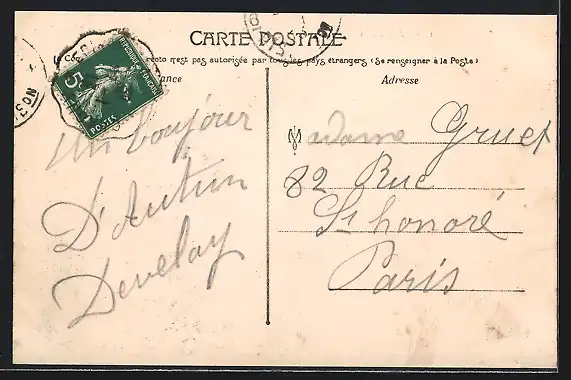 CARTE POSTALE
recto n'est pas autorisée par tous les pays étrangers (Se renseigner à la Poste)
Adresse
5c
REPUBLIQUE FRANCAISE
POSTES
Un boujour
D'Autun
Develay
Madame Gruet
82 Rue
St honoré
Paris